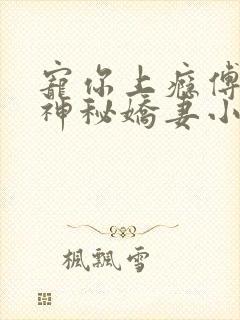 寵你上癮傅
神秘嬌妻小
楓飄雪